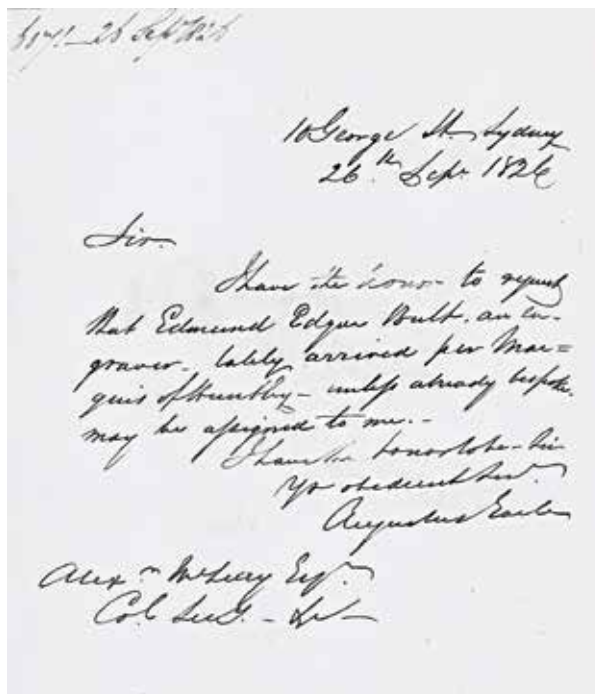 26 Sept
10 George St. Sydney
26.th Sepr. 1826
Sir
I have the honor to request
that Edmund Edgar Bult. an en-
graver. lately arrived per Mar=
quis of Huntley - unless already bespoke.
may be assigned to me. -
I have the honor to be - Sir
Yr obedient Servt.
Augustus Earle
Alexr. McLeay Esqr.
Col Secy. -